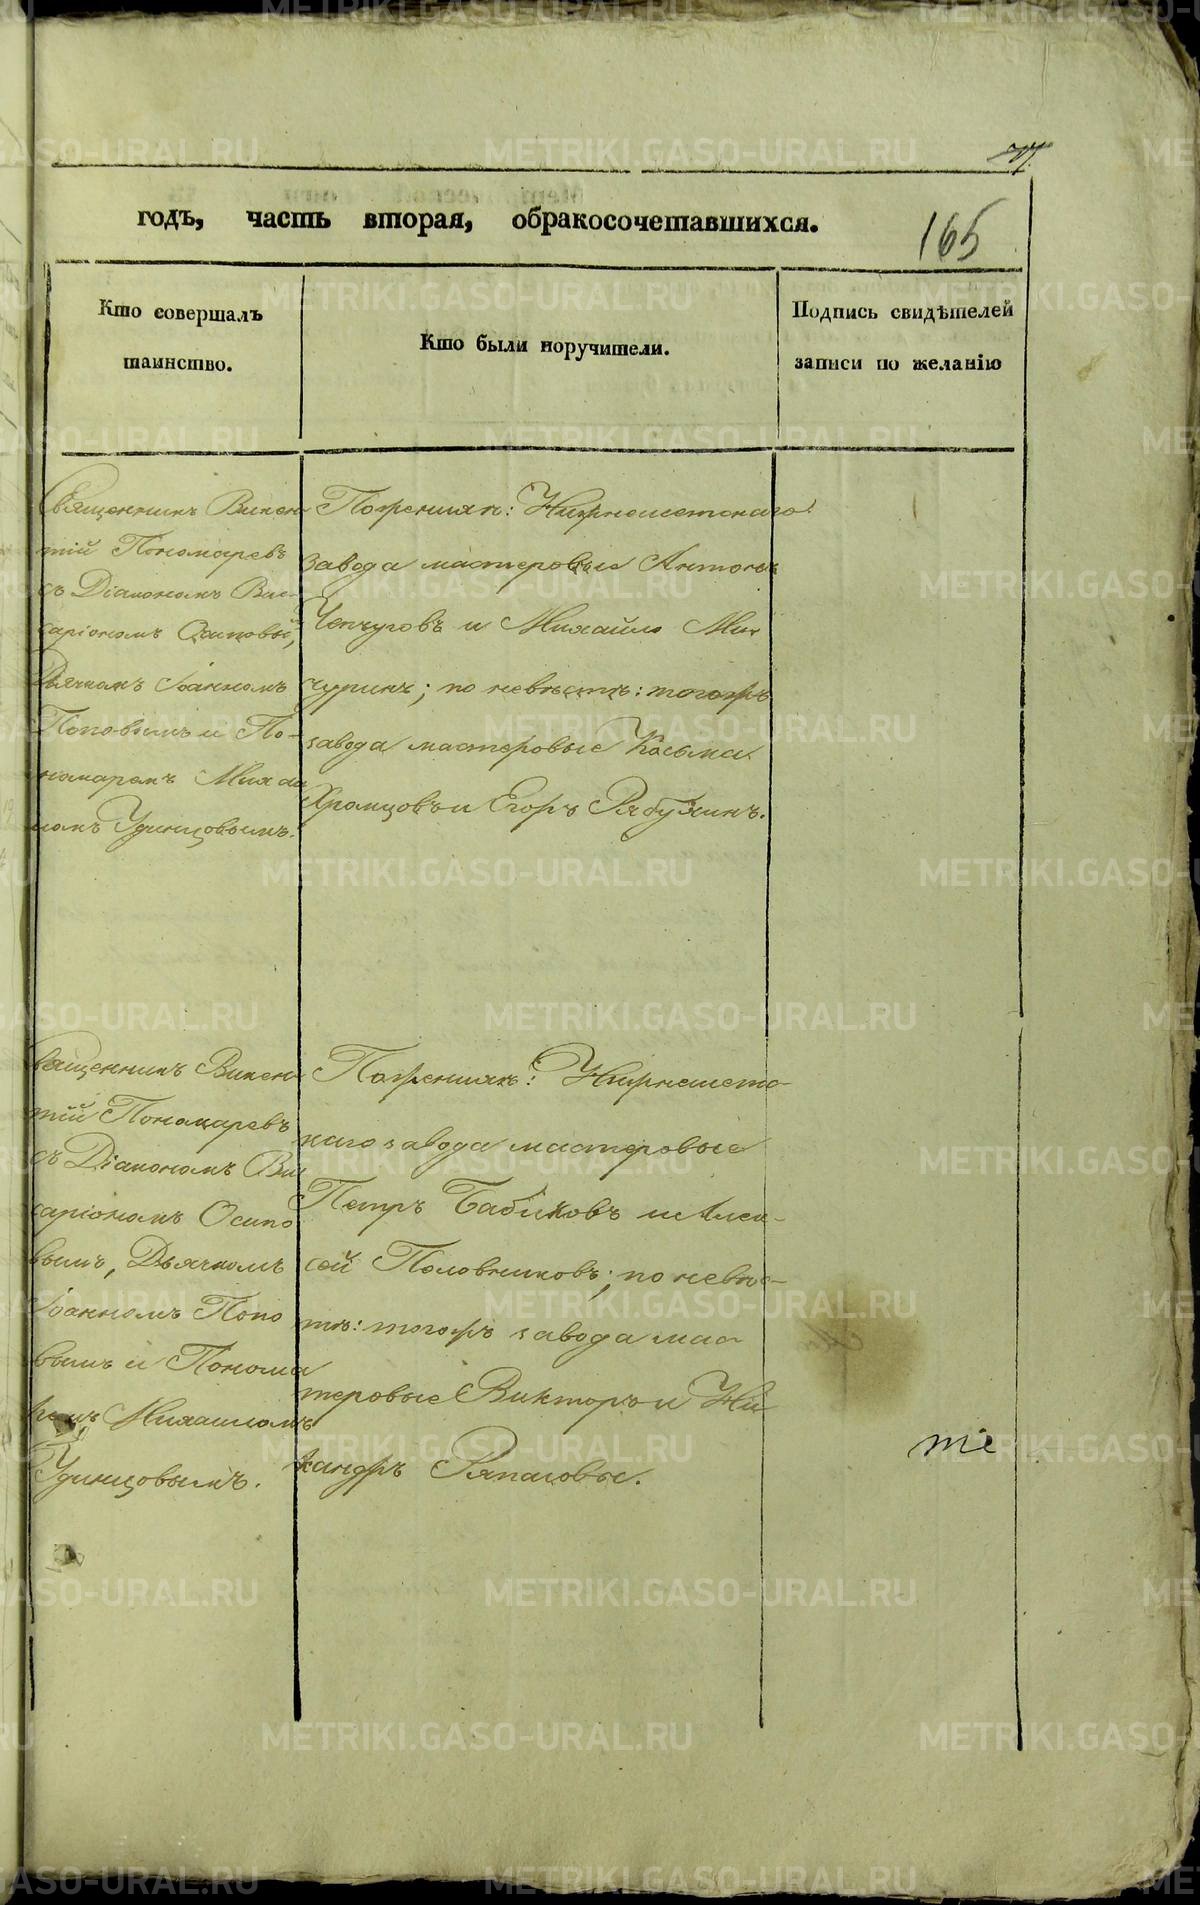 77.
годъ, часть вторая, обракосочетавшихся.
165
Кто совершалъ
таинство.
Кто были поручители.
Подпись свидѣтелей
записи по желанію
Священникъ Викен
тій Пономаревъ
съ Діакономъ Вис-
саріономъ Осиповы,
Дьячкомъ Іоанномъ
Поповымъ и По-
номаремъ Михаи
ломъ Удинцовымъ.
По женихѣ: Нижнеисетскаго
завода мастеровые Антонъ
Чепчуговъ и Михайло Ми
чуринъ; по невѣстѣ: тогожъ
завода мастеровые Косьма
Храмцовъ и Егоръ Рябухинъ.
Священникъ Викен-
тій Пономаревъ
съ Діакономъ Вис
саріономъ Осипо
вымъ, Дьячкомъ
Іоанномъ Попо
вымъ и Понома
ремъ Михаиломъ
Удинцовымъ.
По женихѣ: Нижнеисетс-
каго завода мастеровые
Петръ Бабиковъ и Алек-
сѣй Половниковъ; по невѣс-
тѣ: тогожъ завода мас
теровые Викторъ и Ни
кандръ Ряпасовы.
те
METRIKI.GASO-URAL.RU